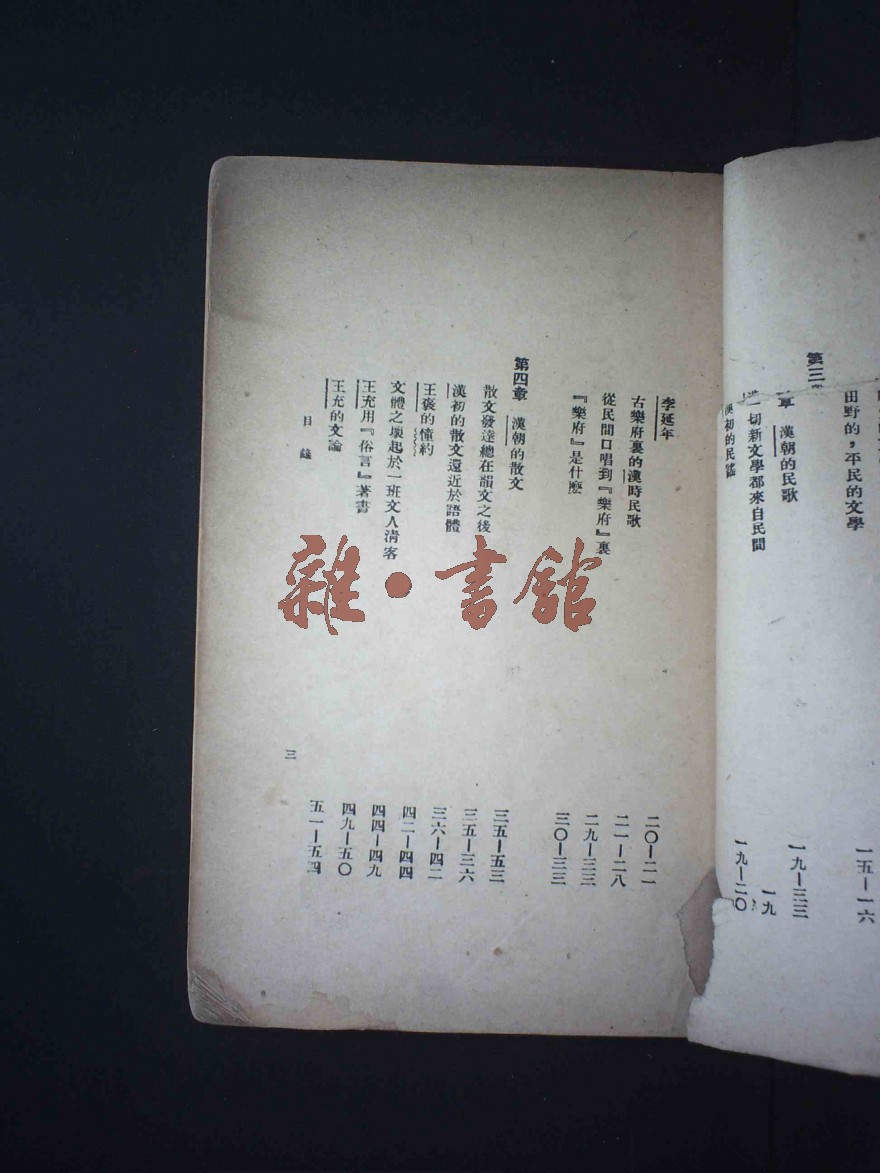 田野的，平民的文學
一五—一六
第三章 漢朝的民歌
一九—三三
一切新文學都來自民間
一九
漢初的民謠
一九—二〇
李延年
二〇—二一
古樂府裏的漢時民歌
二一—二八
從民間口唱到『樂府』裏
二九—三三
『樂府』是什麽
三〇—三三
第四章 漢朝的散文
三五—五三
散文發達總在韻文之後
三五—三六
漢初的散文還近於語體
三六—四二
王褒的僮約
四二—四四
文體之壞起於一班文人清客
四四—四九
王充用『俗言』著書
四九—五〇
王充的文論
五一—五四
目錄
三
雜·書館